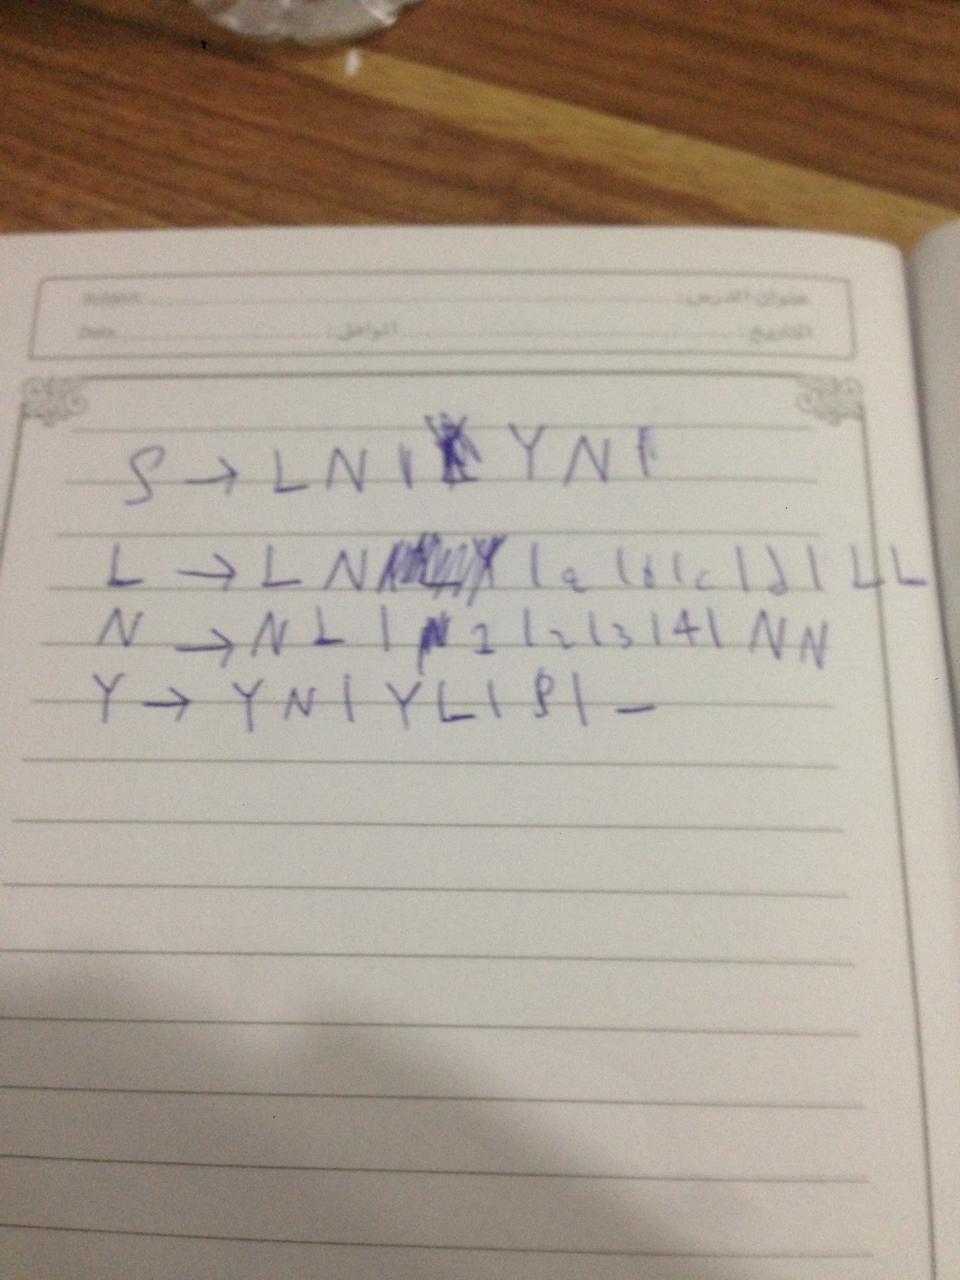 Subject:
عنوان الدرس:
Date
الموافق:
التاريخ:
S → L N | Y N |
L → L N | a | b | c | d | L L
N → N L | 1 | 2 | 3 | 4 | N N
Y → Y N | Y L | S | _